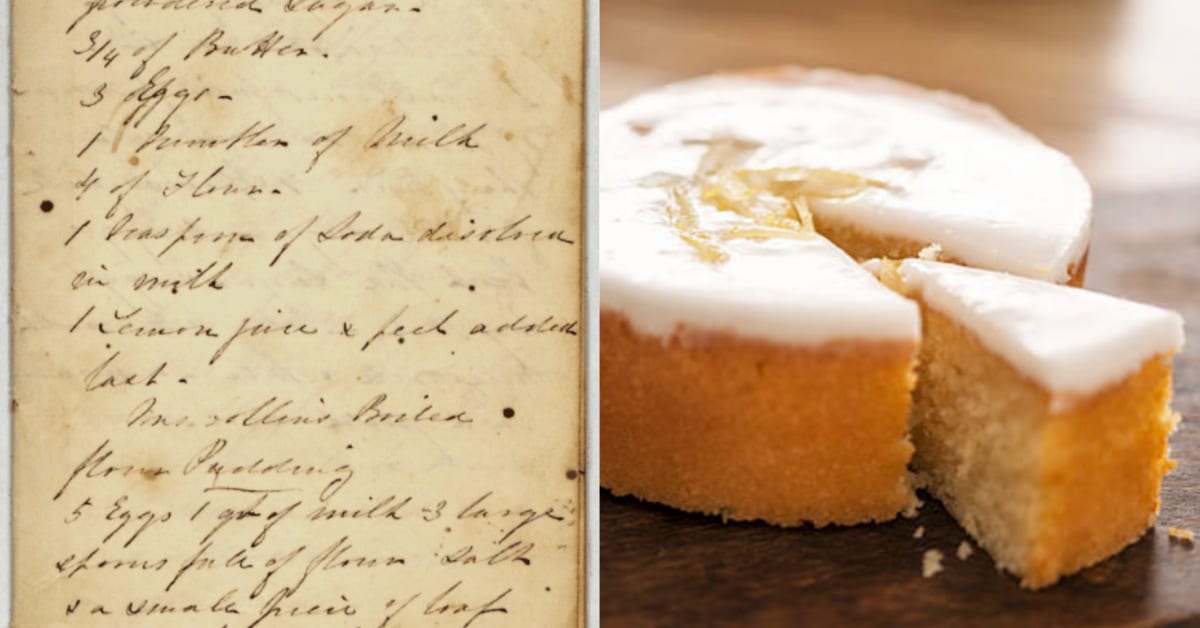 powdered Sugar.
3/4 of Butter.
3 Eggs -
1 Tumbler of Milk
4 of Flour.
1 Teaspoon of Soda disolved
in milk
1 Lemon juice & peel added
last.
Mrs. Rollins Boiled
flour Pudding
5 Eggs 1 qt of milk 3 large
spoons full of flour Salt
& a small piece of loaf